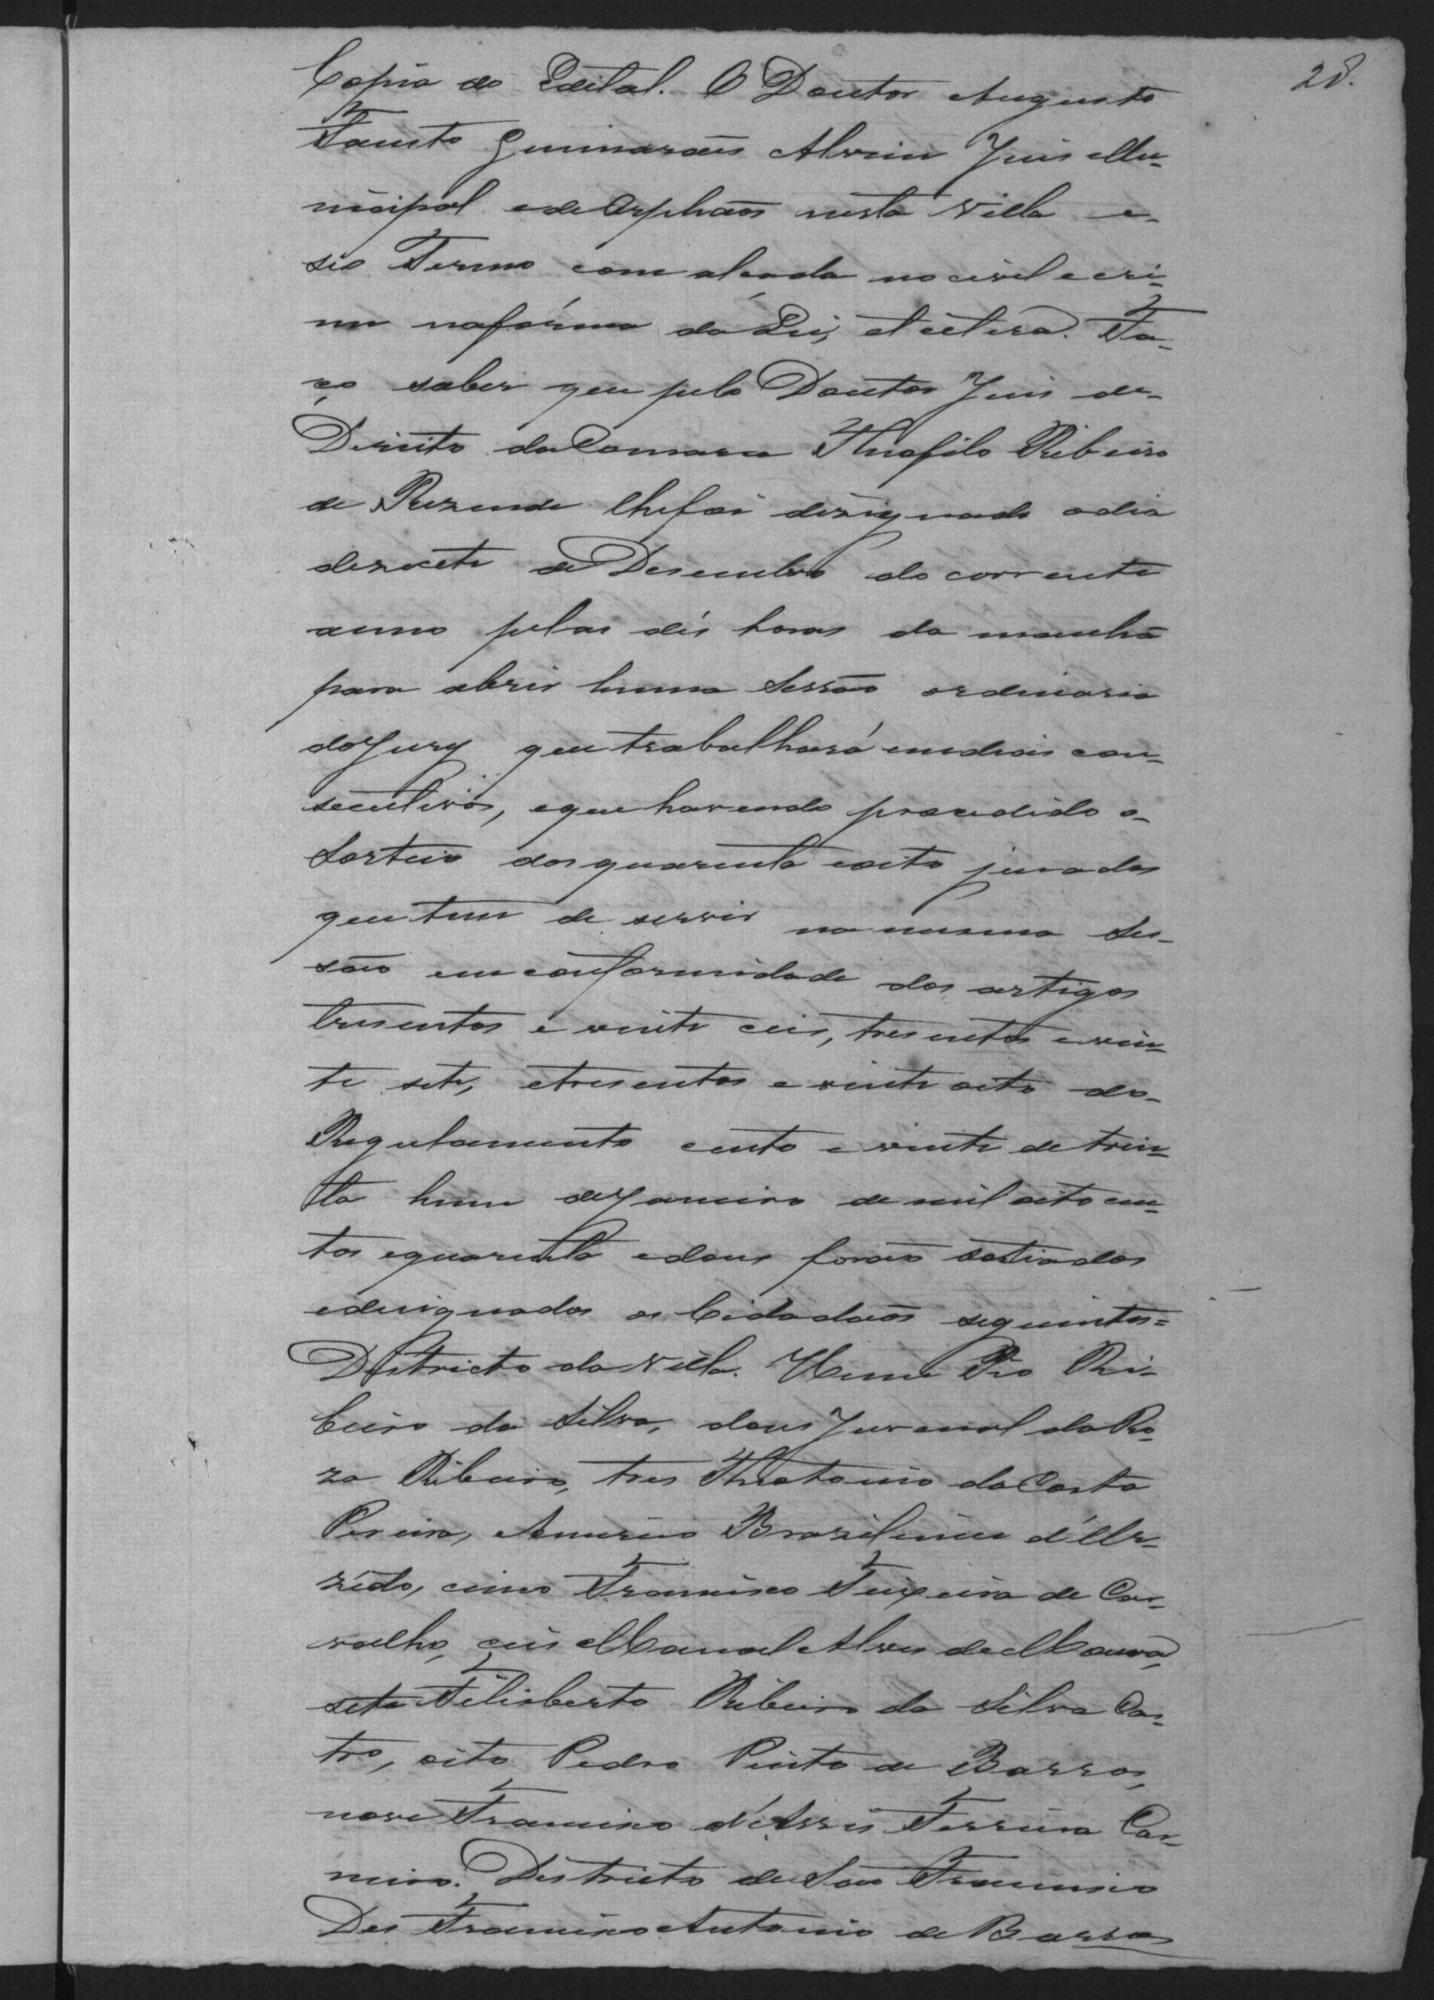 28.
Copia do Edital. O Doutor Augusto
Fausto Guimaraẽs Alvim Juis Mu-
nicipal e de Orphaõs nesta Villa e-
seo Termo com alcada no civel e cri-
me na fórma da Lei, et cetera. Fa-
ço saber que pelo Doutor Juis de-
Direito da Comarca Theofilo Ribeiro
de Rezende lhe foi dezignado o dia
dezasete de Desembro do corrente
anno pelas dés horas da manhã
para abrir huma Sessaõ ordinaria
do Jury que trabalhará em dias con-
secutivos, e que havendo procedido o-
Sorteio dos quarenta e oito jurados
que tem de servir na mesma Ses-
saõ em conformidade dos artigos
tresentos e vinte ceis, tresentos e vin-
te sete, e tresentos e vinte oito do-
Regulamento cento e vinte de trin-
ta hum de Janeiro de mil oito cen-
tos e quarenta e dous foraõ sortiados
e designados os Cidadaõs seguintes=
Districto da Villa. Hum Pio Ri-
beiro da Silva, dous Juvenal da Ro-
za Ribeiro, tres Theotonio da Costa
Pereira, Americo Braziliense d'
, cinco Francisco Teixeira de Car-
valho, ceis Manoel Alves de Moura,
sete Felisberto Ribeiro da Silva Cas-
tro, oito Pedro Pinto de Barros,
nove Francisco d'Assis Ferreira Car-
neiro. Districto de Saõ Francisco
Des Francisco Antonio de Barros